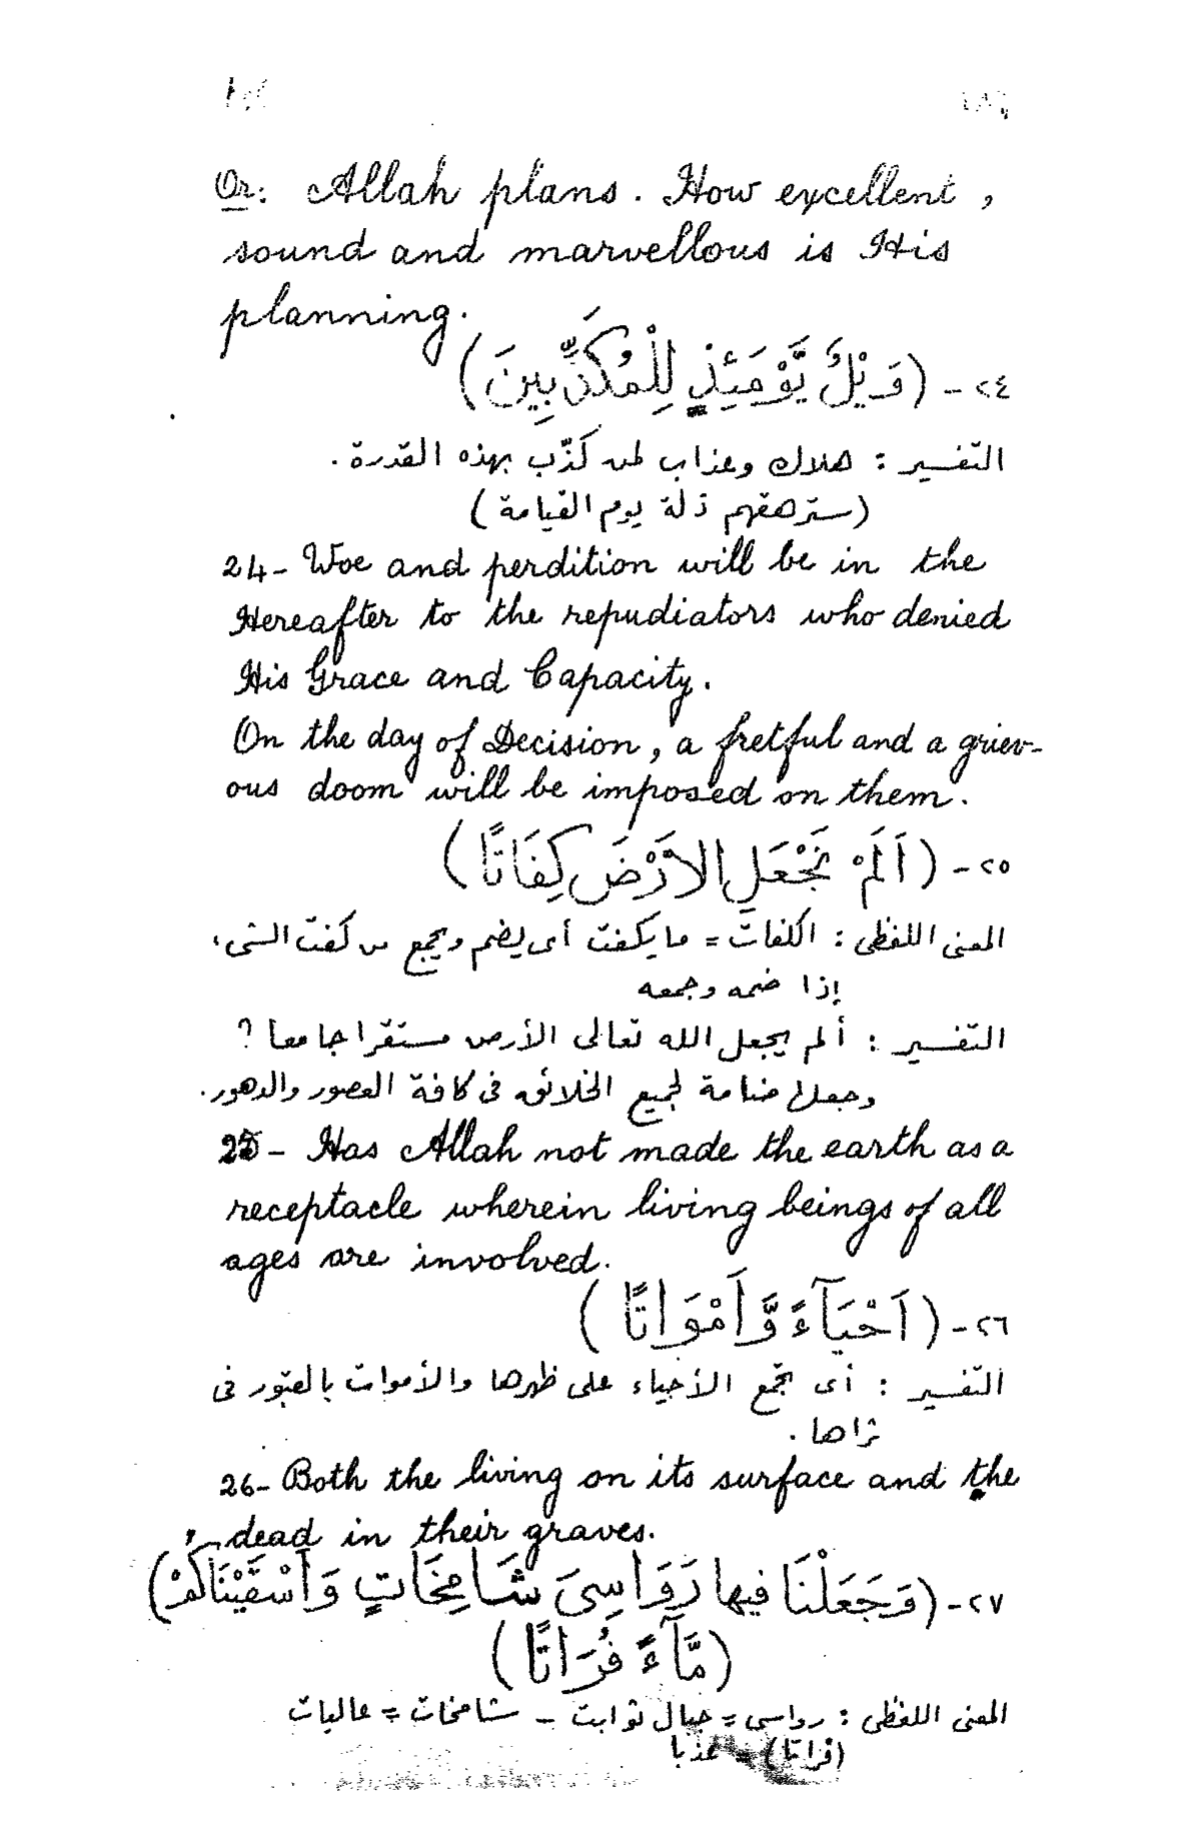 Or: Allah plans. How excellent,
sound and marvellous is His
planning.
٢٤- (وَيْلٌ يَّوْمَئِذٍ لِلْمُكَذِّبِينَ)
التفسير : هلاك وعذاب لمن كذّب بهذه القدرة .
(سترهقهم ذلة يوم القيامة)
24- Woe and perdition will be in the
Hereafter to the repudiators who denied
His Grace and Capacity.
On the day of Decision, a fretful and a griev-
ous doom will be imposed on them.
٢٥- (اَلَمْ نَجْعَلِ الاَرْضَ كِفَاتًا)
المعنى اللفظى : الكفات = ما يكفت أى يضم ويجمع من كفت الشىء
إذا ضمه وجمعه
التفسير : ألم يجعل الله تعالى الأرض مستقرا جامعا ?
وجعلها ضامة لجميع الخلائق فى كافة العصور والدهور.
25- Has Allah not made the earth as a
receptacle wherein living beings of all
ages are involved.
٢٦- (اَحْيَآءً وَّاَمْوَاتًا)
التفسير : أى تجمع الأحياء على ظهرها والأموات بالقبور فى
ثراها .
26- Both the living on its surface and the
dead in their graves.
٢٧- (وَجَعَلْنَا فيها رَوَاسِىَ شَامِخَاتٍ وَاَسْقَيْنَاكُمْ)
(مَّآءً فُرَاتًا)
المعنى اللفظى : رواسى = جبال ثوابت - شامخات = عاليات
(فراتا) = عذبا